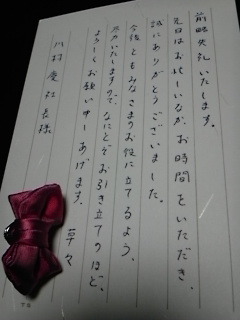 前略失礼いたします。
先日はお忙しいなか、お時間をいただき、
誠にありがとうございました。
今後ともみなさまのお役に立てるよう、
努力いたしますので、なにとぞお引き立てのほど、
よろしくお願い申しあげます。
草々
川村慶社長様